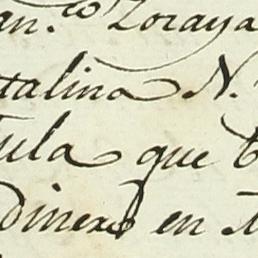 an.co Loraya
talina N.
ula que
dinero en